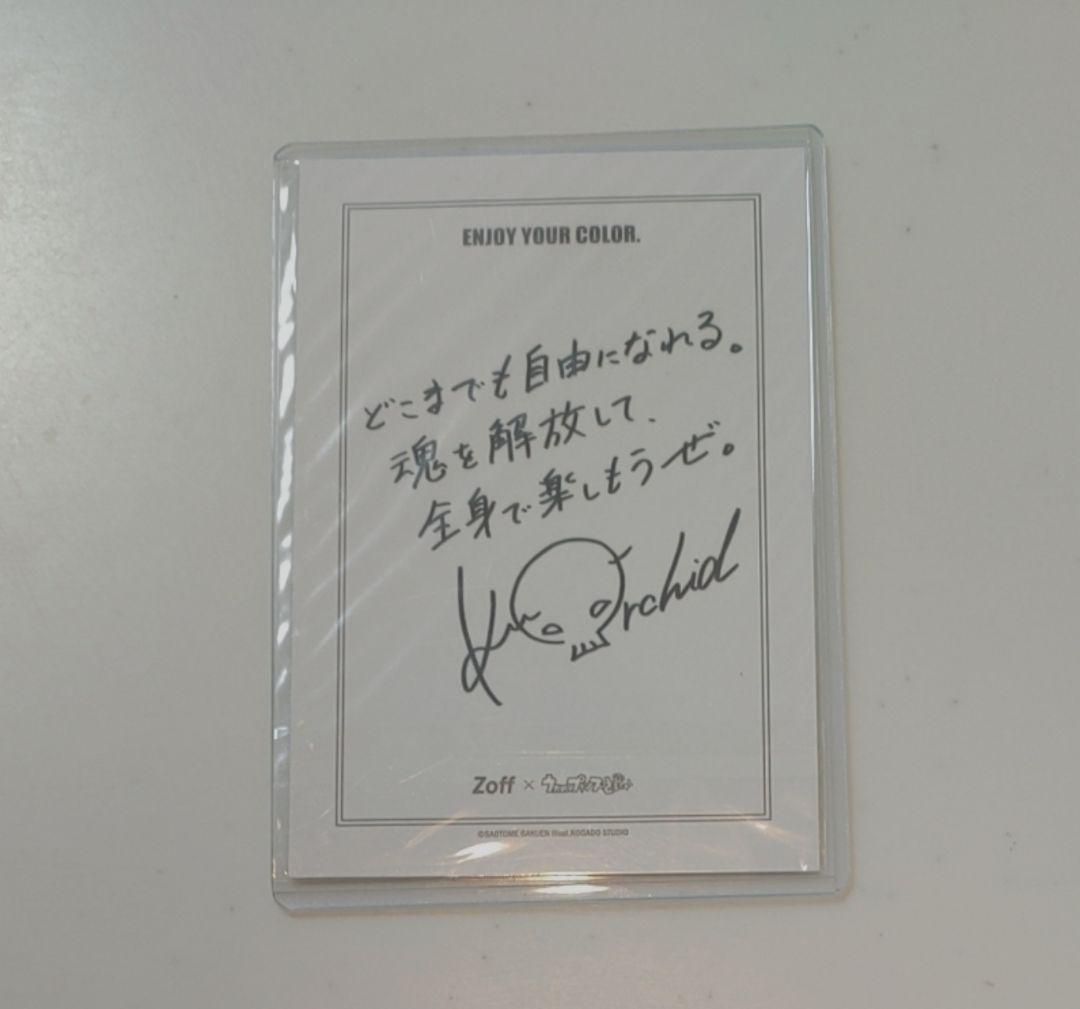 ENJOY YOUR COLOR.
どこまでも自由になれる。
魂を解放して、
全身で楽しもうぜ。
Van Orchid
Zoff × うたの☆プリンスさまっ♪
©SAOTOME GAKUEN Illust.KOGADO STUDIO